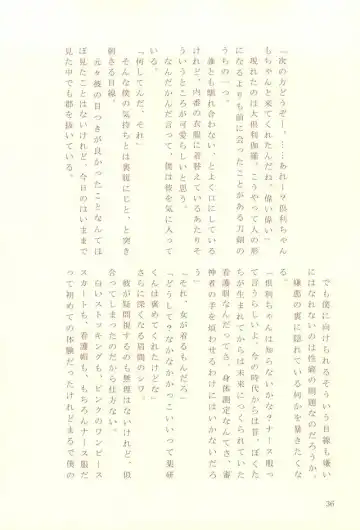 「次の方どうぞー、……あれー？倶利ちゃん
もちゃんと来てくれたんだね、偉い偉い」
現れたのは大倶利伽羅。こうやって人の形
になるよりも前に会ったことがある刀剣の
うちの一つ。
誰とも馴れ合わない、とよく口にしている
けれど、内番の衣服に着替えているあたりそ
ういうところが可愛らしいと思う。
なんだかんだ言って、僕は彼を気に入って
いる。
「何してんだ、それ」
そんな僕の気持ちとは裏腹にじと、と突き
刺さる目線。
元々彼の目つきが良かったことなんてほ
ぼ見たことはないけれど、今日のはいままで
見た中でも群を抜いている。
でも僕に向けられるそういう目線も嫌い
にはなれないのは性癖の問題なのだろうか。
嫌悪の裏に隠れている何かを暴きたくな
る。
「倶利ちゃんは知らないかな？ナース服っ
て言うらしいよ。今の時代からは昔、ぼくた
ちが生まれてからは未来に発生してくれた
看護服なんだってさ。身体測定なんてさ、審
神者の手を煩わせるわけにはいかないだろ
う」
「それ、女が着るもんだろ」
「どうして？なかなかかっこいいって薬研
くんは褒めてくれたけどな」
さらに深くなる眉間のシワ。
彼が疑問視するのも無理はないけれど、似
合ってしまったのだから仕方ない。
白いストッキングも、ピンクのワンピース
スカートも、看護帽も、もちろんナース服だ
って初めての体験だったけれどまるで僕の
36